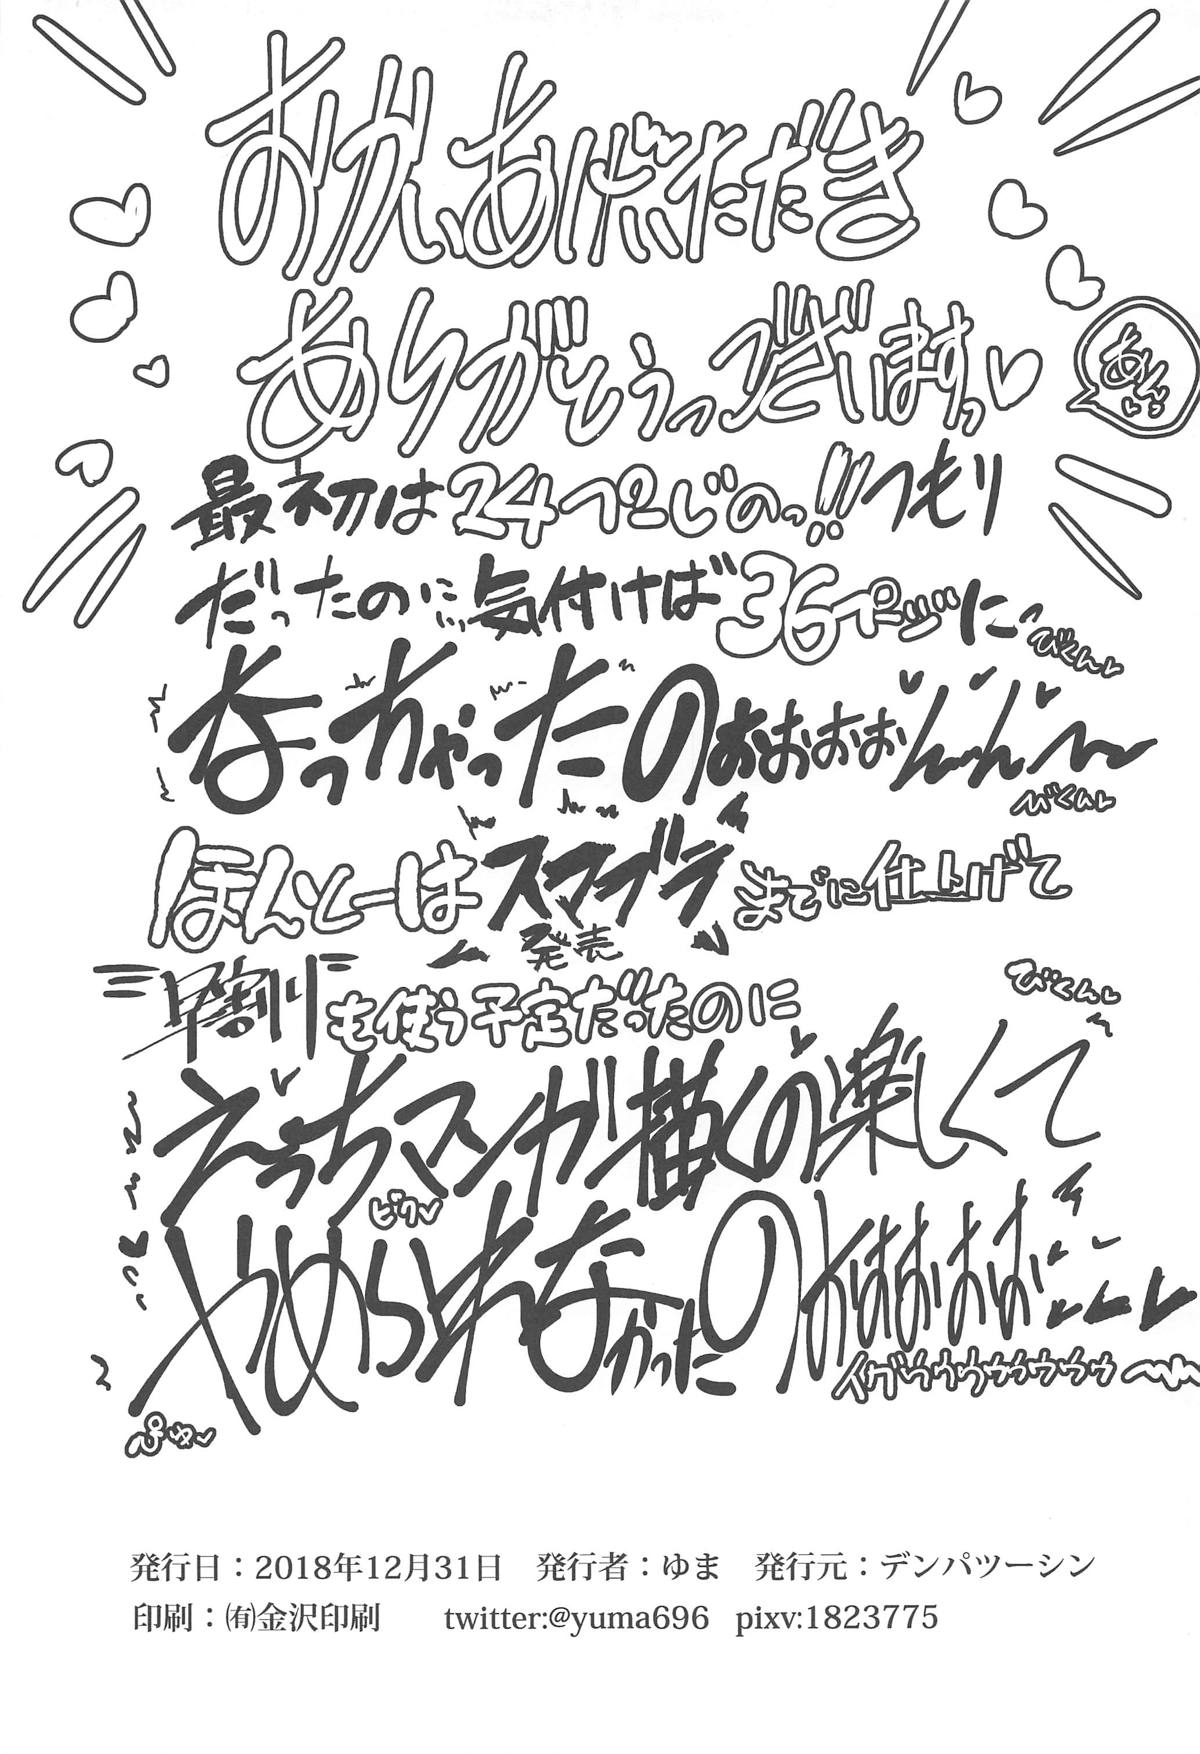 おかいあげいただき
ありがとうっございますっ♡
あんっ
最初は24ページのっ!!つもり
だったのに気付けば36ページに
びくん♡
なっちゃったのおおおおんん〜
びくん♡
ほんとーはスマブラ発売までに仕上げて
早割りも使う予定だったのに
びくん♡
えっちマンガ描くの楽しくて
ビク♡
やめられなかったのおほおおお
イグゥゥゥゥゥゥゥゥ
ぴゅ♡
発行日：2018年12月31日　発行者：ゆま　発行元：デンパツーシン
印刷：㈲金沢印刷　twitter:@yuma696　pixv:1823775